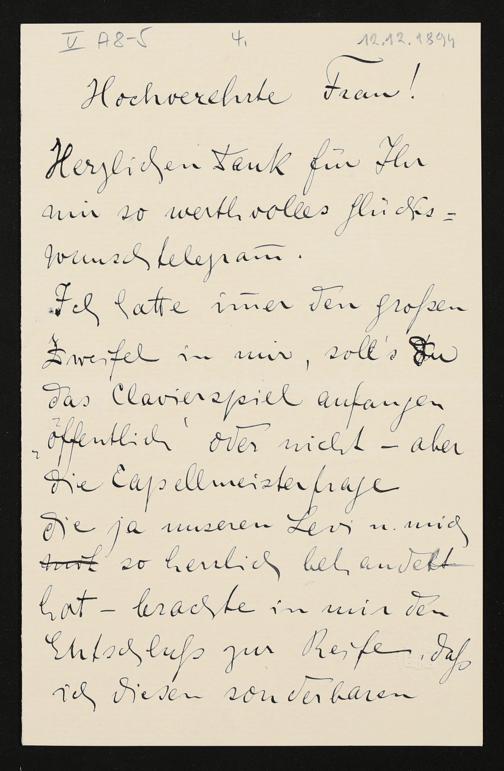 V A8-5 4. 12.12.1894
Hochverehrte Frau!
Herzlichen Dank für Ihr
mir so werthvolles Glücks=
wunschtelegram̅.
Ich hatte im̅er den großen
Zweifel in mir, soll's Du
das Clavierspiel anfangen
„öffentlich" oder nicht – aber
die Capellmeisterfrage
die ja unseren Levi u. mich
so herrlich behandelt
hat – brachte in mir den
Entschluß zur Reife, daß
ich diesen sonderbaren